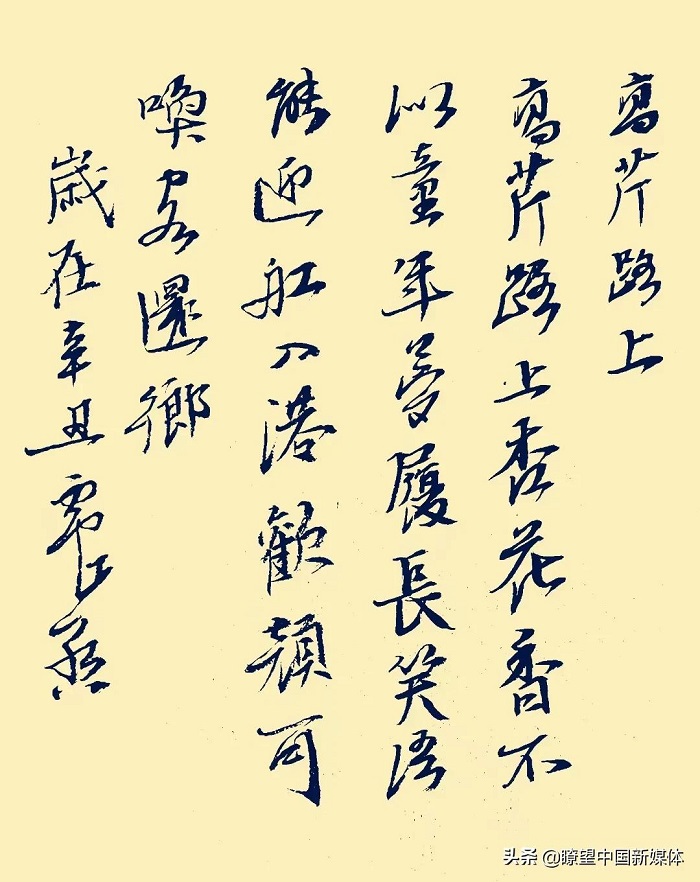 高芹路上
高芹路上杏花香不
似童年履長笑語
能迎舡入港歡顔可
喚客還鄉
歲在辛丑
头条 @瞭望中国新媒体